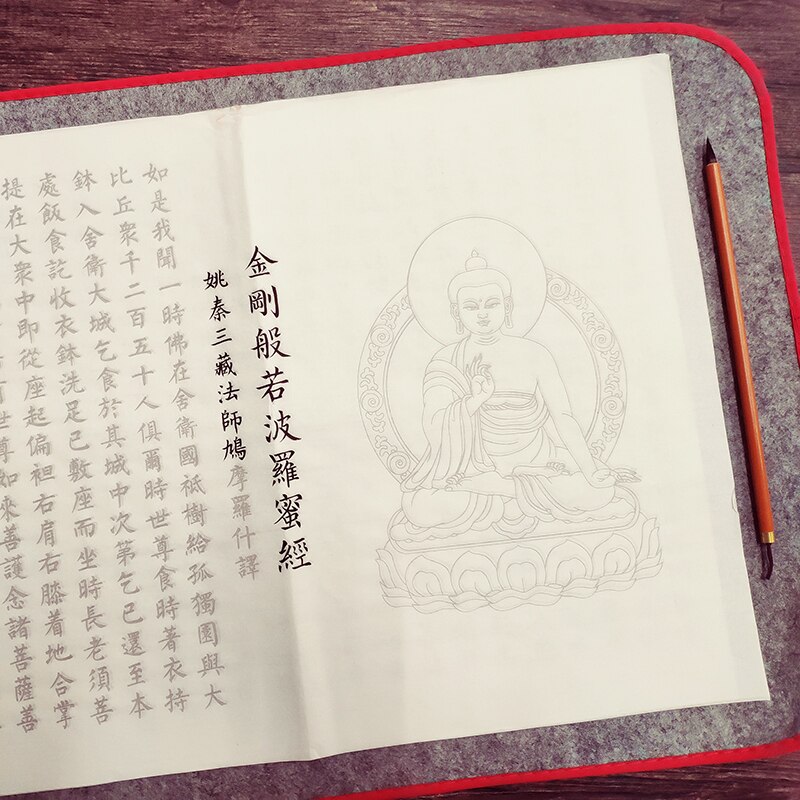 金剛般若波羅蜜經
姚秦三藏法師鳩摩羅什譯
如是我聞一時佛在舍衛國祇樹給孤獨園與大
比丘衆千二百五十人俱爾時世尊食時著衣持
鉢入舍衛大城乞食於其城中次第乞已還至本
處飯食訖收衣鉢洗足已敷座而坐時長老須菩
提在大衆中即從座起偏袒右肩右膝着地合掌
世尊如來善護念諸菩薩善